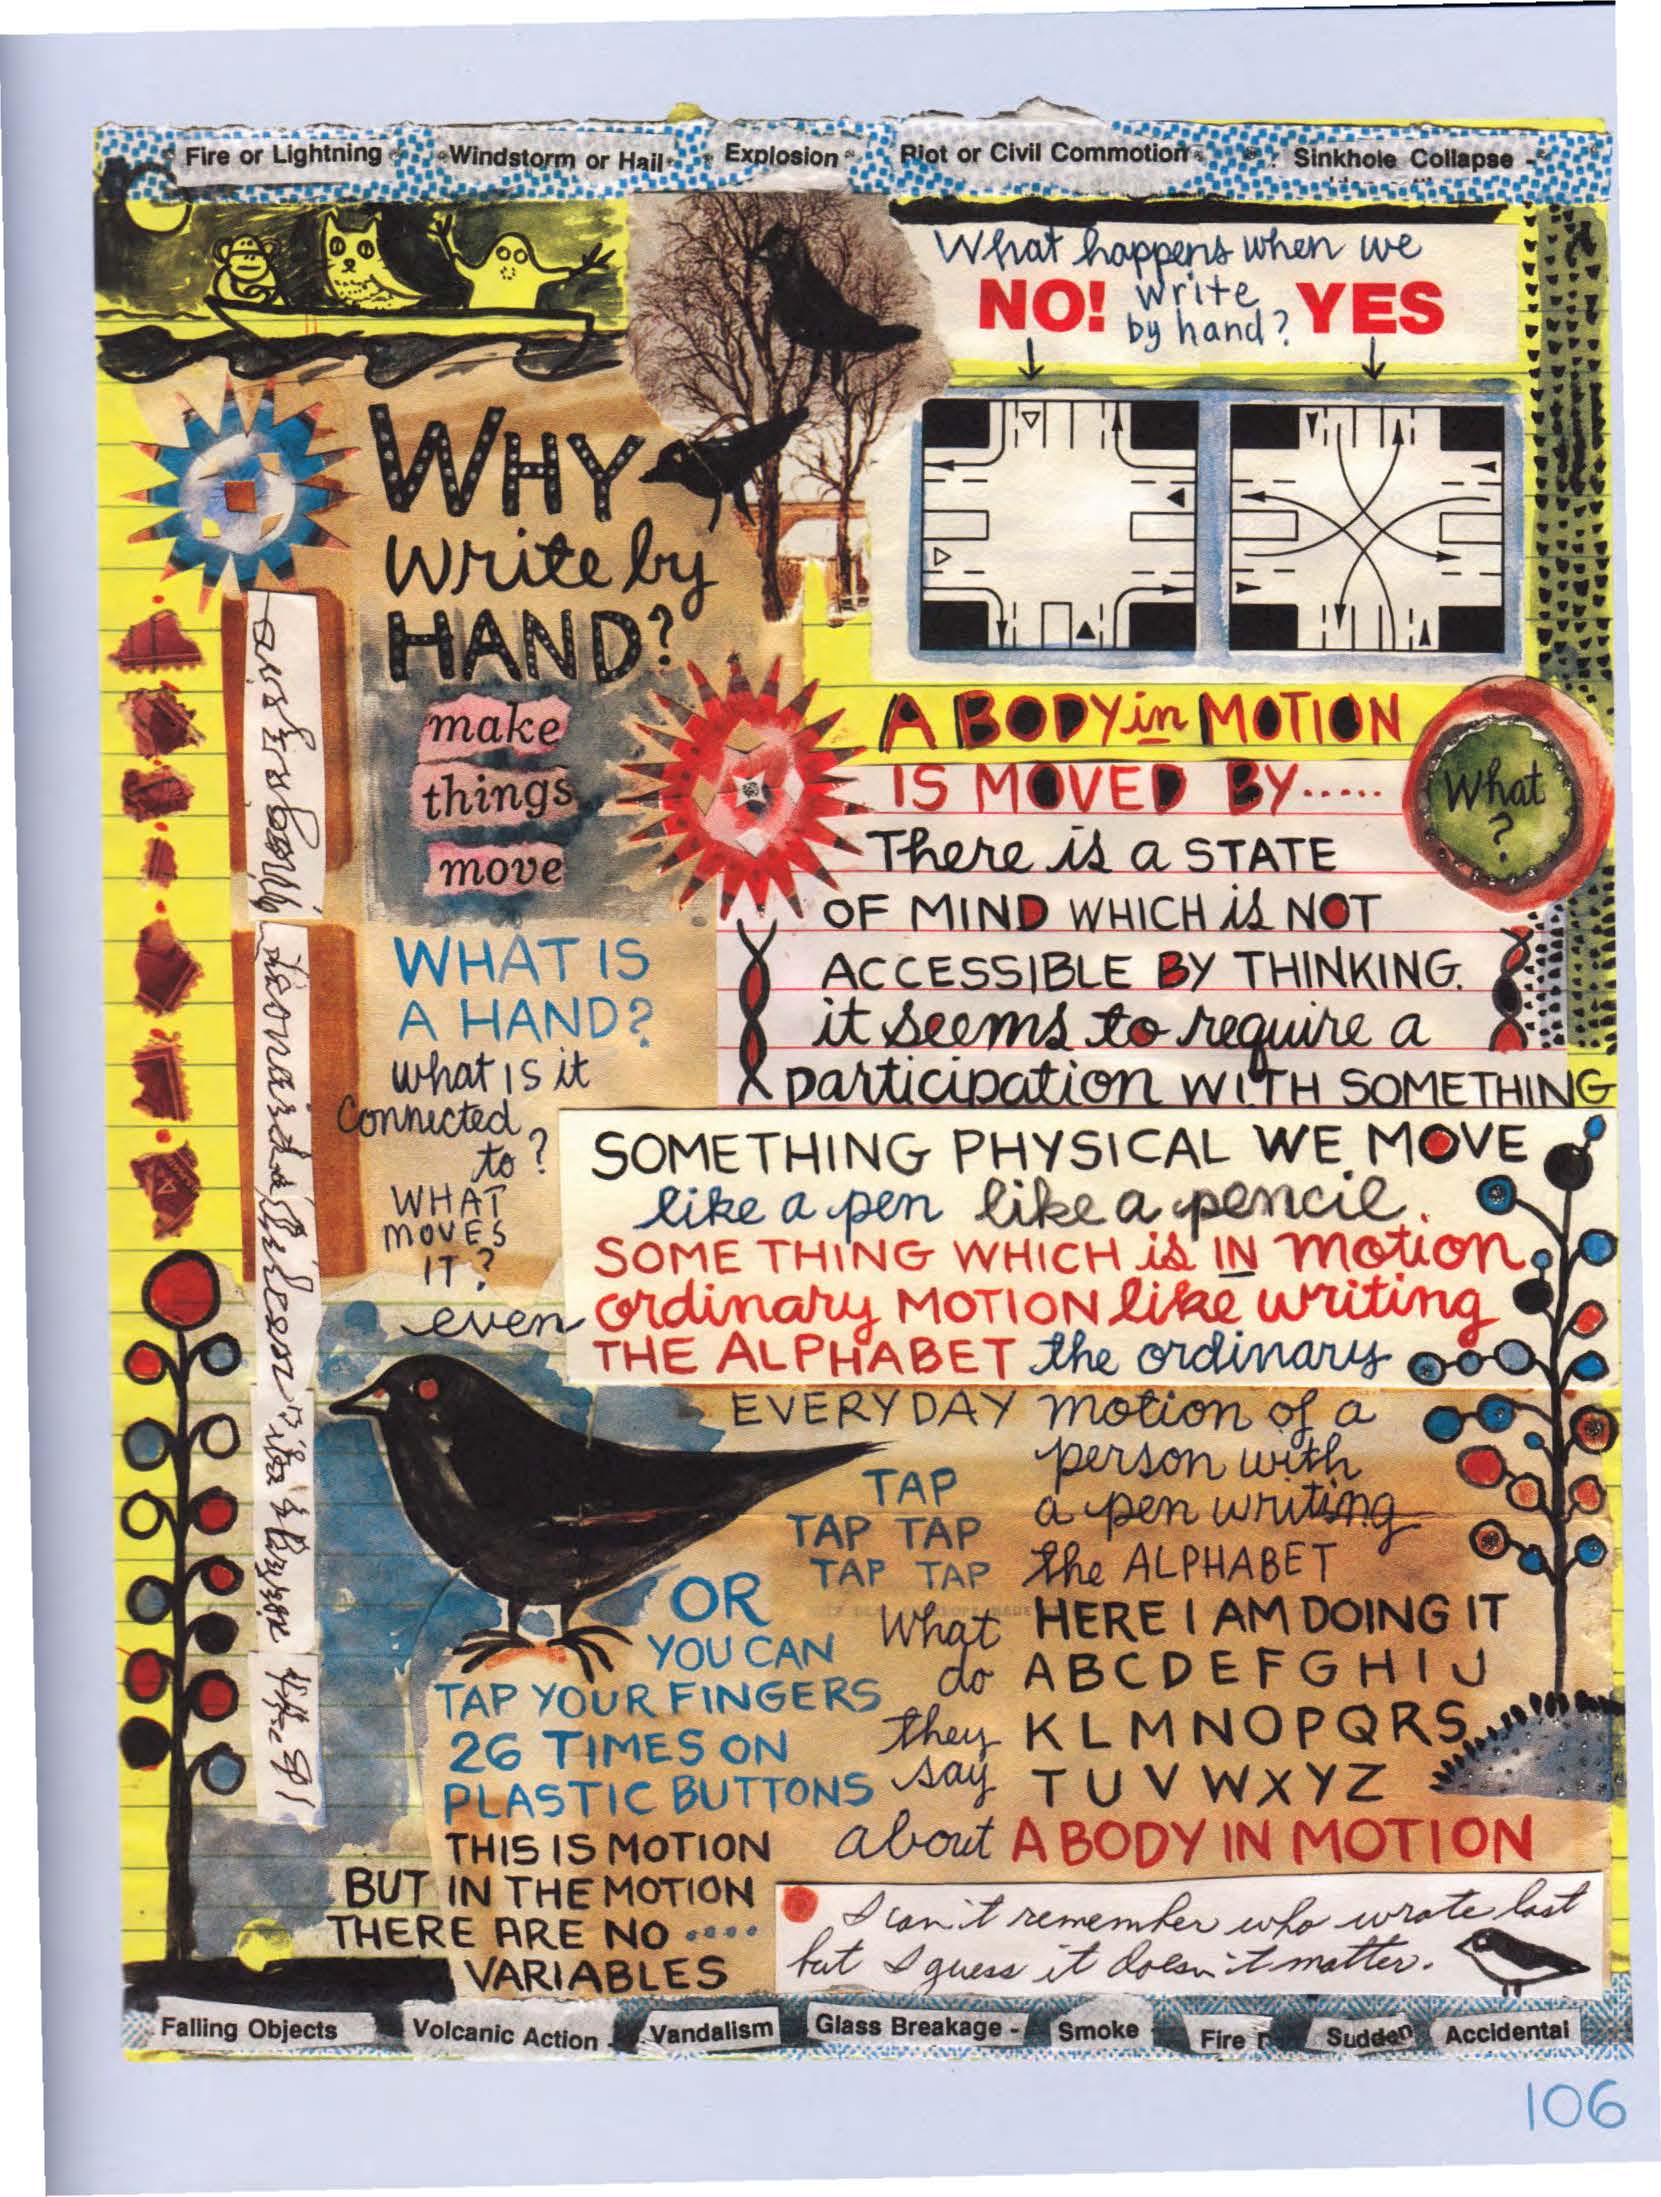 Fire or Lightning
Windstorm or Hail
Explosion
Riot or Civil Commotion
Sinkhole Collapse
What happens when we
write
by hand?
NO!
YES
WHY
Write by
HAND?
make
things
move
WHAT IS
A HAND?
what is it
connected
to?
WHAT
MOVES
IT?
A BODY in MOTION
IS MOVED BY.....
What
?
There is a STATE
OF MIND WHICH is NOT
ACCESSIBLE BY THINKING.
it seems to require a
participation WITH SOMETHING
SOMETHING PHYSICAL WE MOVE
like a pen like a pencil.
SOME THING WHICH is IN motion
even ordinary MOTION like writing
THE ALPHABET the ordinary
EVERYDAY motion of a
person with
a pen writing
the ALPHABET
HERE I AM DOING IT
A B C D E F G H I J
K L M N O P Q R S
T U V W X Y Z
TAP
TAP TAP
TAP TAP
OR
YOU CAN
TAP YOUR FINGERS
26 TIMES ON
PLASTIC BUTTONS
THIS IS MOTION
BUT IN THE MOTION
THERE ARE NO ....
VARIABLES
What
do
they
say
about A BODY IN MOTION
I can't remember who wrote last
but I guess it doesn't matter.
Falling Objects
Volcanic Action -
Vandalism
Glass Breakage -
Smoke
Fire
Sudden
Accidental
106